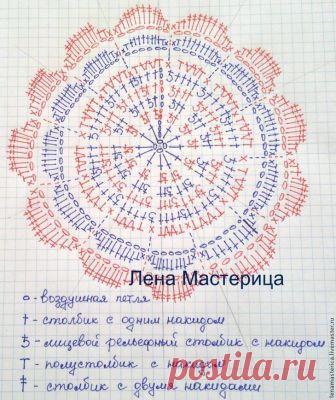 Лена Мастерица
о - воздушная петля
† - столбик с одним накидом
- лицевой рельефный столбик с накидом
Т - полустолбик с накидом
‡ - столбик с двумя накидами
lenamasterica.livemaster.ru
postila.ru